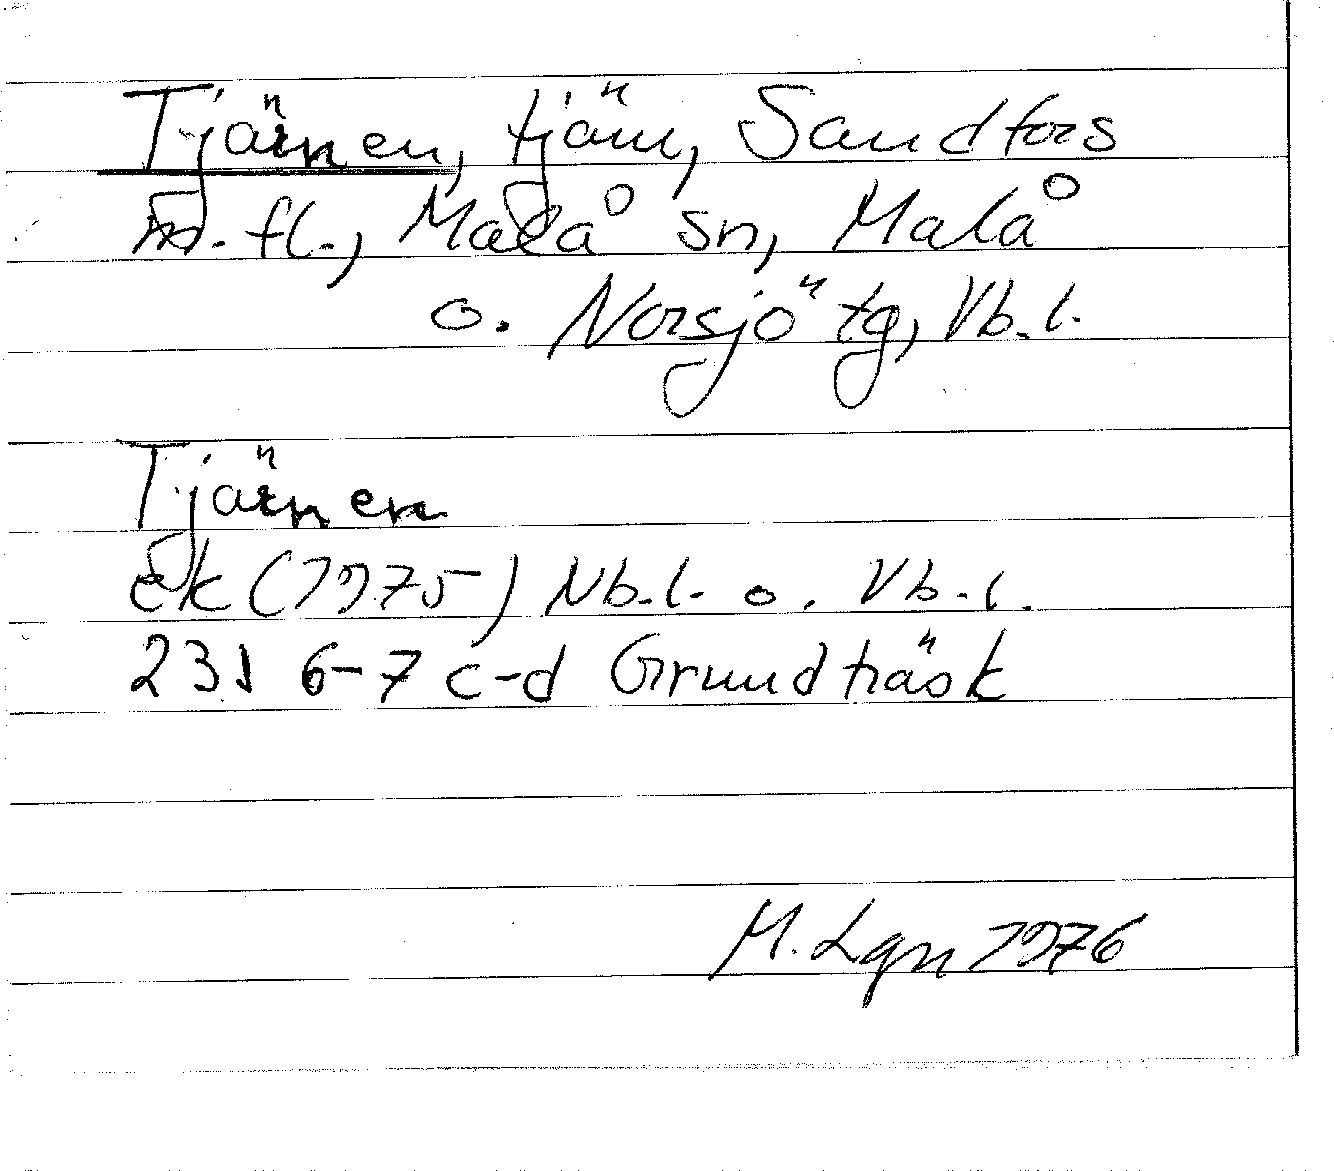 Tjärnen, tjärn, Sandfors
m.fl., Malå sn, Malå
o. Norsjö tg, Vb.l.
Tjärnen
ek (1975) Nb.l. o. Vb.l.
23J 6-7 c-d Grundträsk
M. Lgn 1976